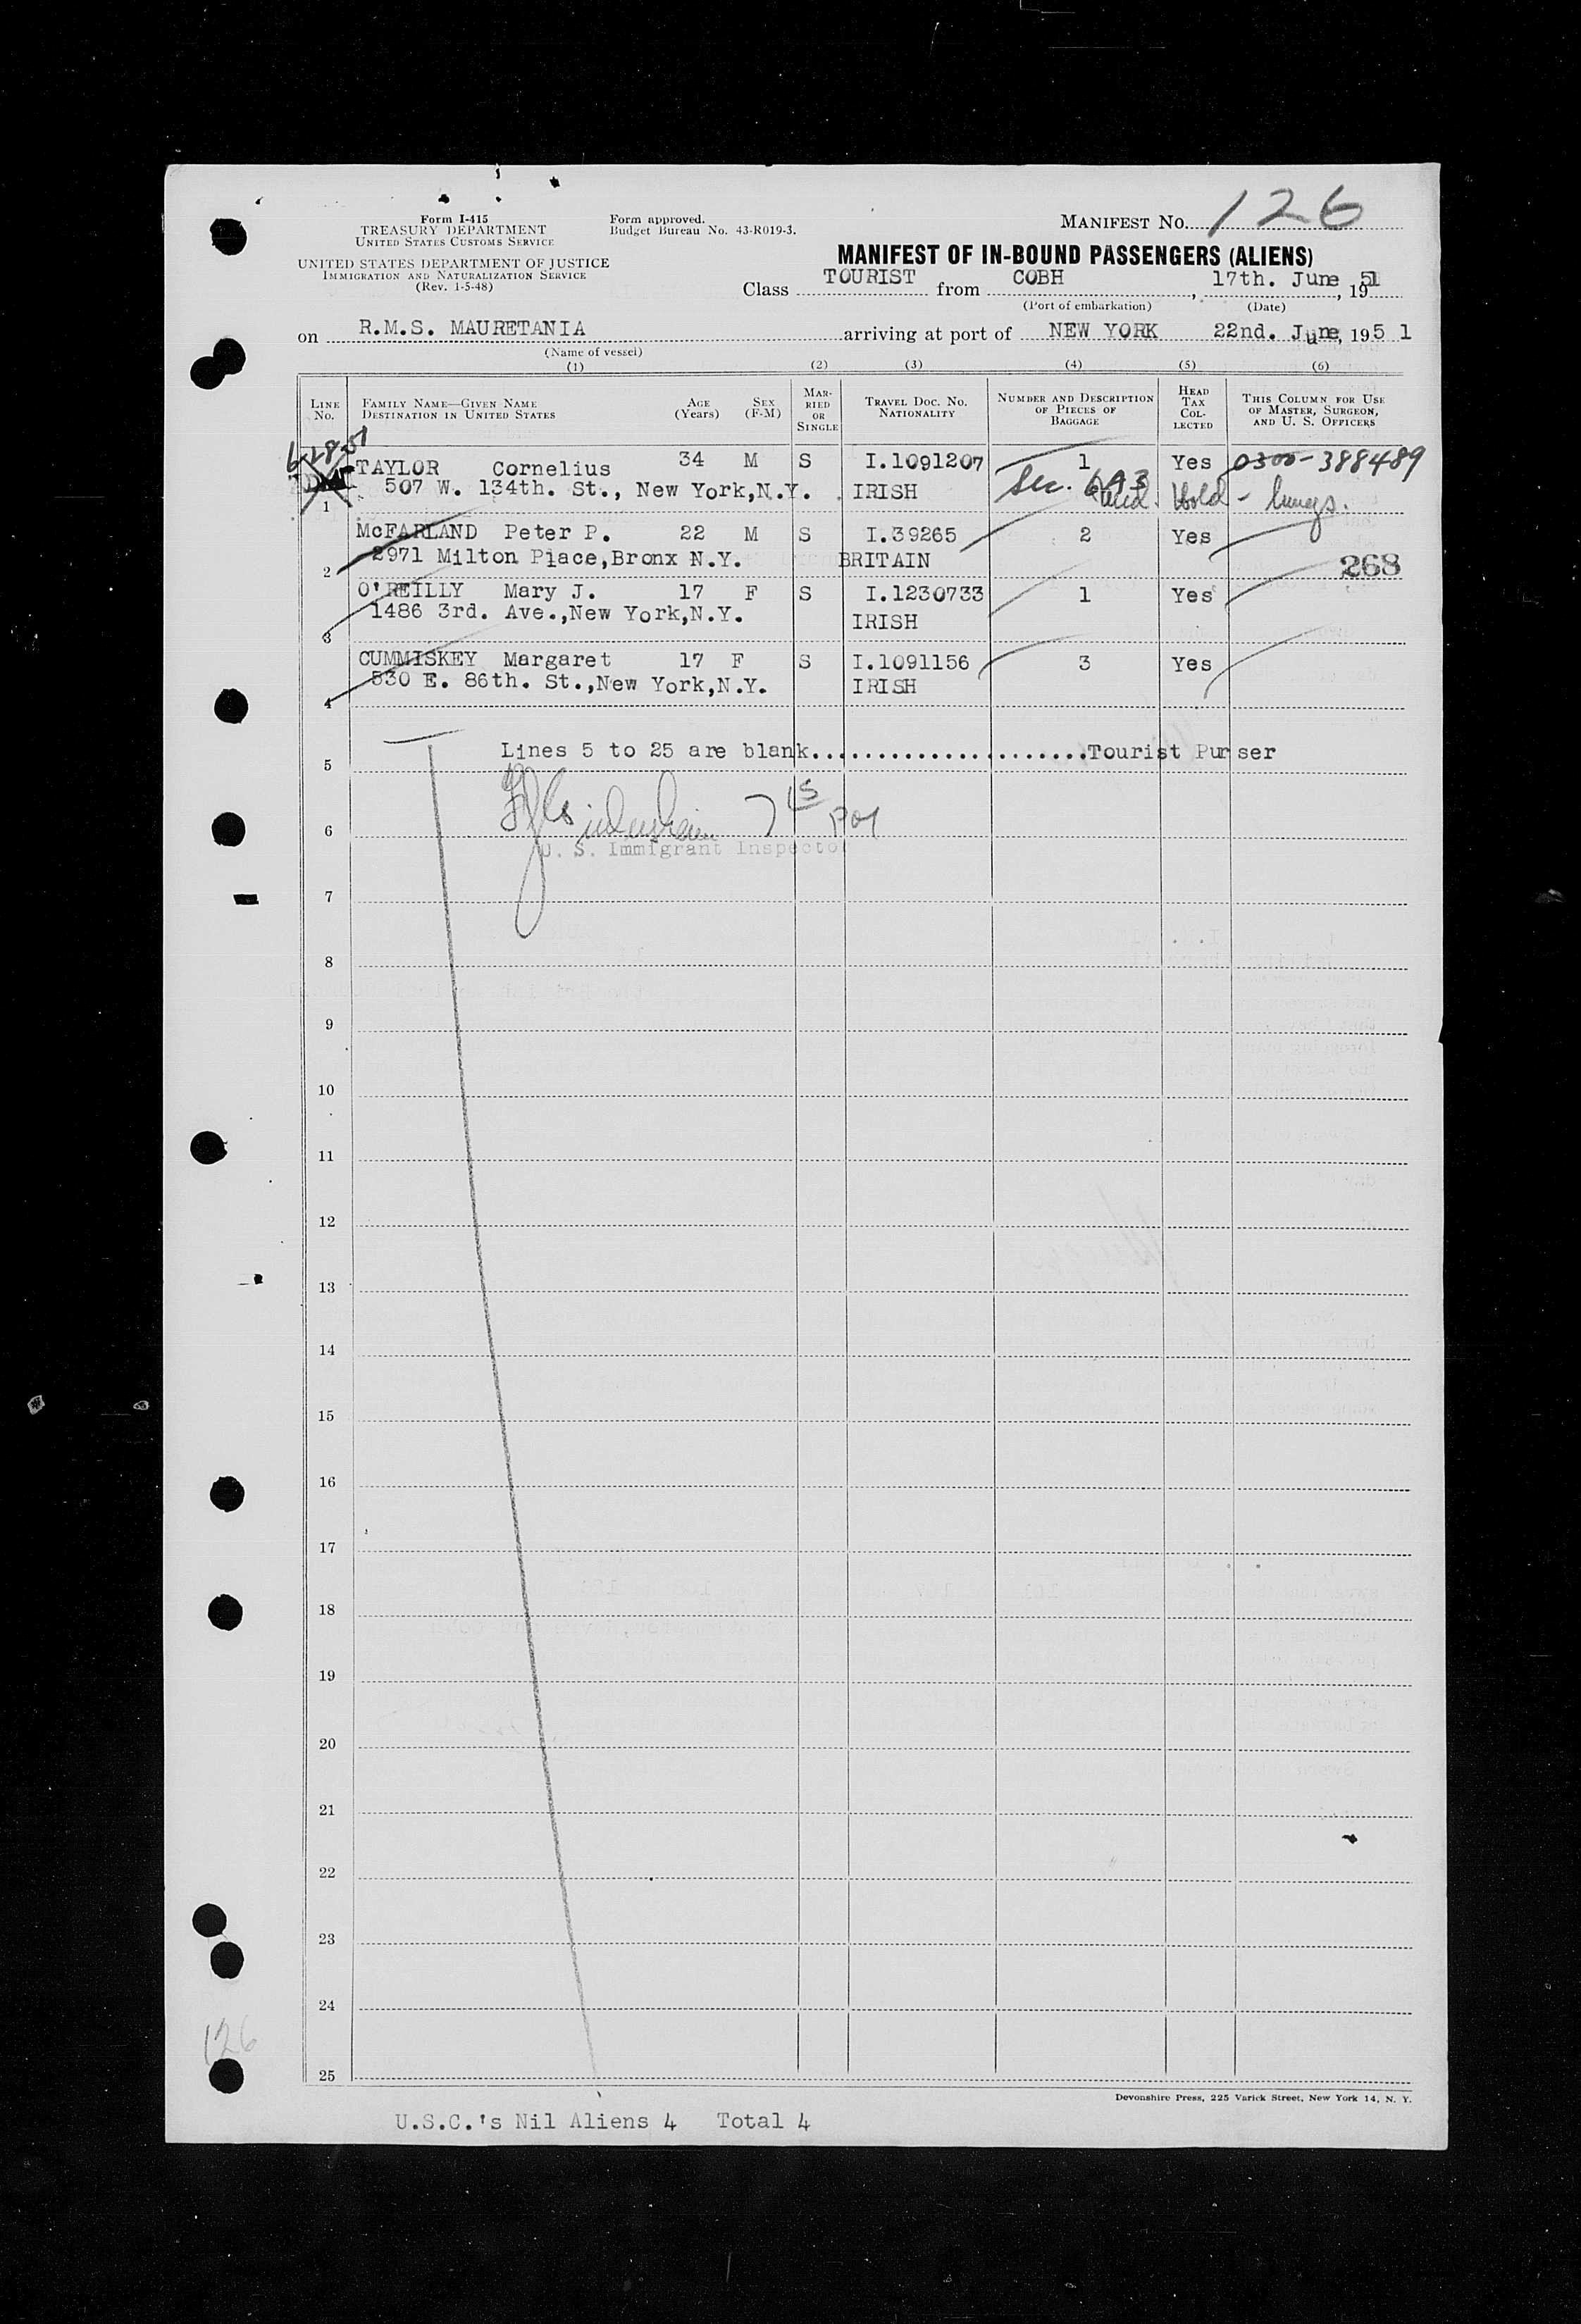 Form I-415
TREASURY DEPARTMENT
UNITED STATES CUSTOMS SERVICE
UNITED STATES DEPARTMENT OF JUSTICE
IMMIGRATION AND NATURALIZATION SERVICE
(Rev. 1-5-48)
Form approved.
Budget Bureau No. 43-R019-3.
MANIFEST No. 126
MANIFEST OF IN-BOUND PASSENGERS (ALIENS)
Class TOURIST from COBH, 17th. June, 1951
(Port of embarkation) (Date)
on R.M.S. MAURETANIA arriving at port of NEW YORK 22nd. June, 1951
(Name of vessel)
(1) (2) (3) (4) (5) (6)
LINE No. FAMILY NAME—GIVEN NAME DESTINATION IN UNITED STATES AGE (Years) SEX (F-M) MARRIED OR SINGLE TRAVEL DOC. NO. NATIONALITY NUMBER AND DESCRIPTION OF PIECES OF BAGGAGE HEAD TAX COLLECTED THIS COLUMN FOR USE OF MASTER, SURGEON, AND U. S. OFFICERS
6-28-51
TAYLOR Cornelius 34 M S I.1091207 1 Yes 0300-388489
1 507 W. 134th. St., New York,N.Y. IRISH Sec. 6A3 Med. Hold - lungs.
McFARLAND Peter P. 22 M S I.39265 2 Yes
2 2971 Milton Place,Bronx N.Y. BRITAIN 268
O'REILLY Mary J. 17 F S I.1230733 1 Yes
3 1486 3rd. Ave.,New York,N.Y. IRISH
CUMMISKEY Margaret 17 F S I.1091156 3 Yes
4 530 E. 86th. St.,New York,N.Y. IRISH
5 Lines 5 to 25 are blank......................Tourist Purser
6
U. S. Immigrant Inspector
7
8
9
10
11
12
13
14
15
16
17
18
19
20
21
22
23
24
25
126
Devonshire Press, 225 Varick Street, New York 14, N. Y.
U.S.C.'s Nil Aliens 4 Total 4